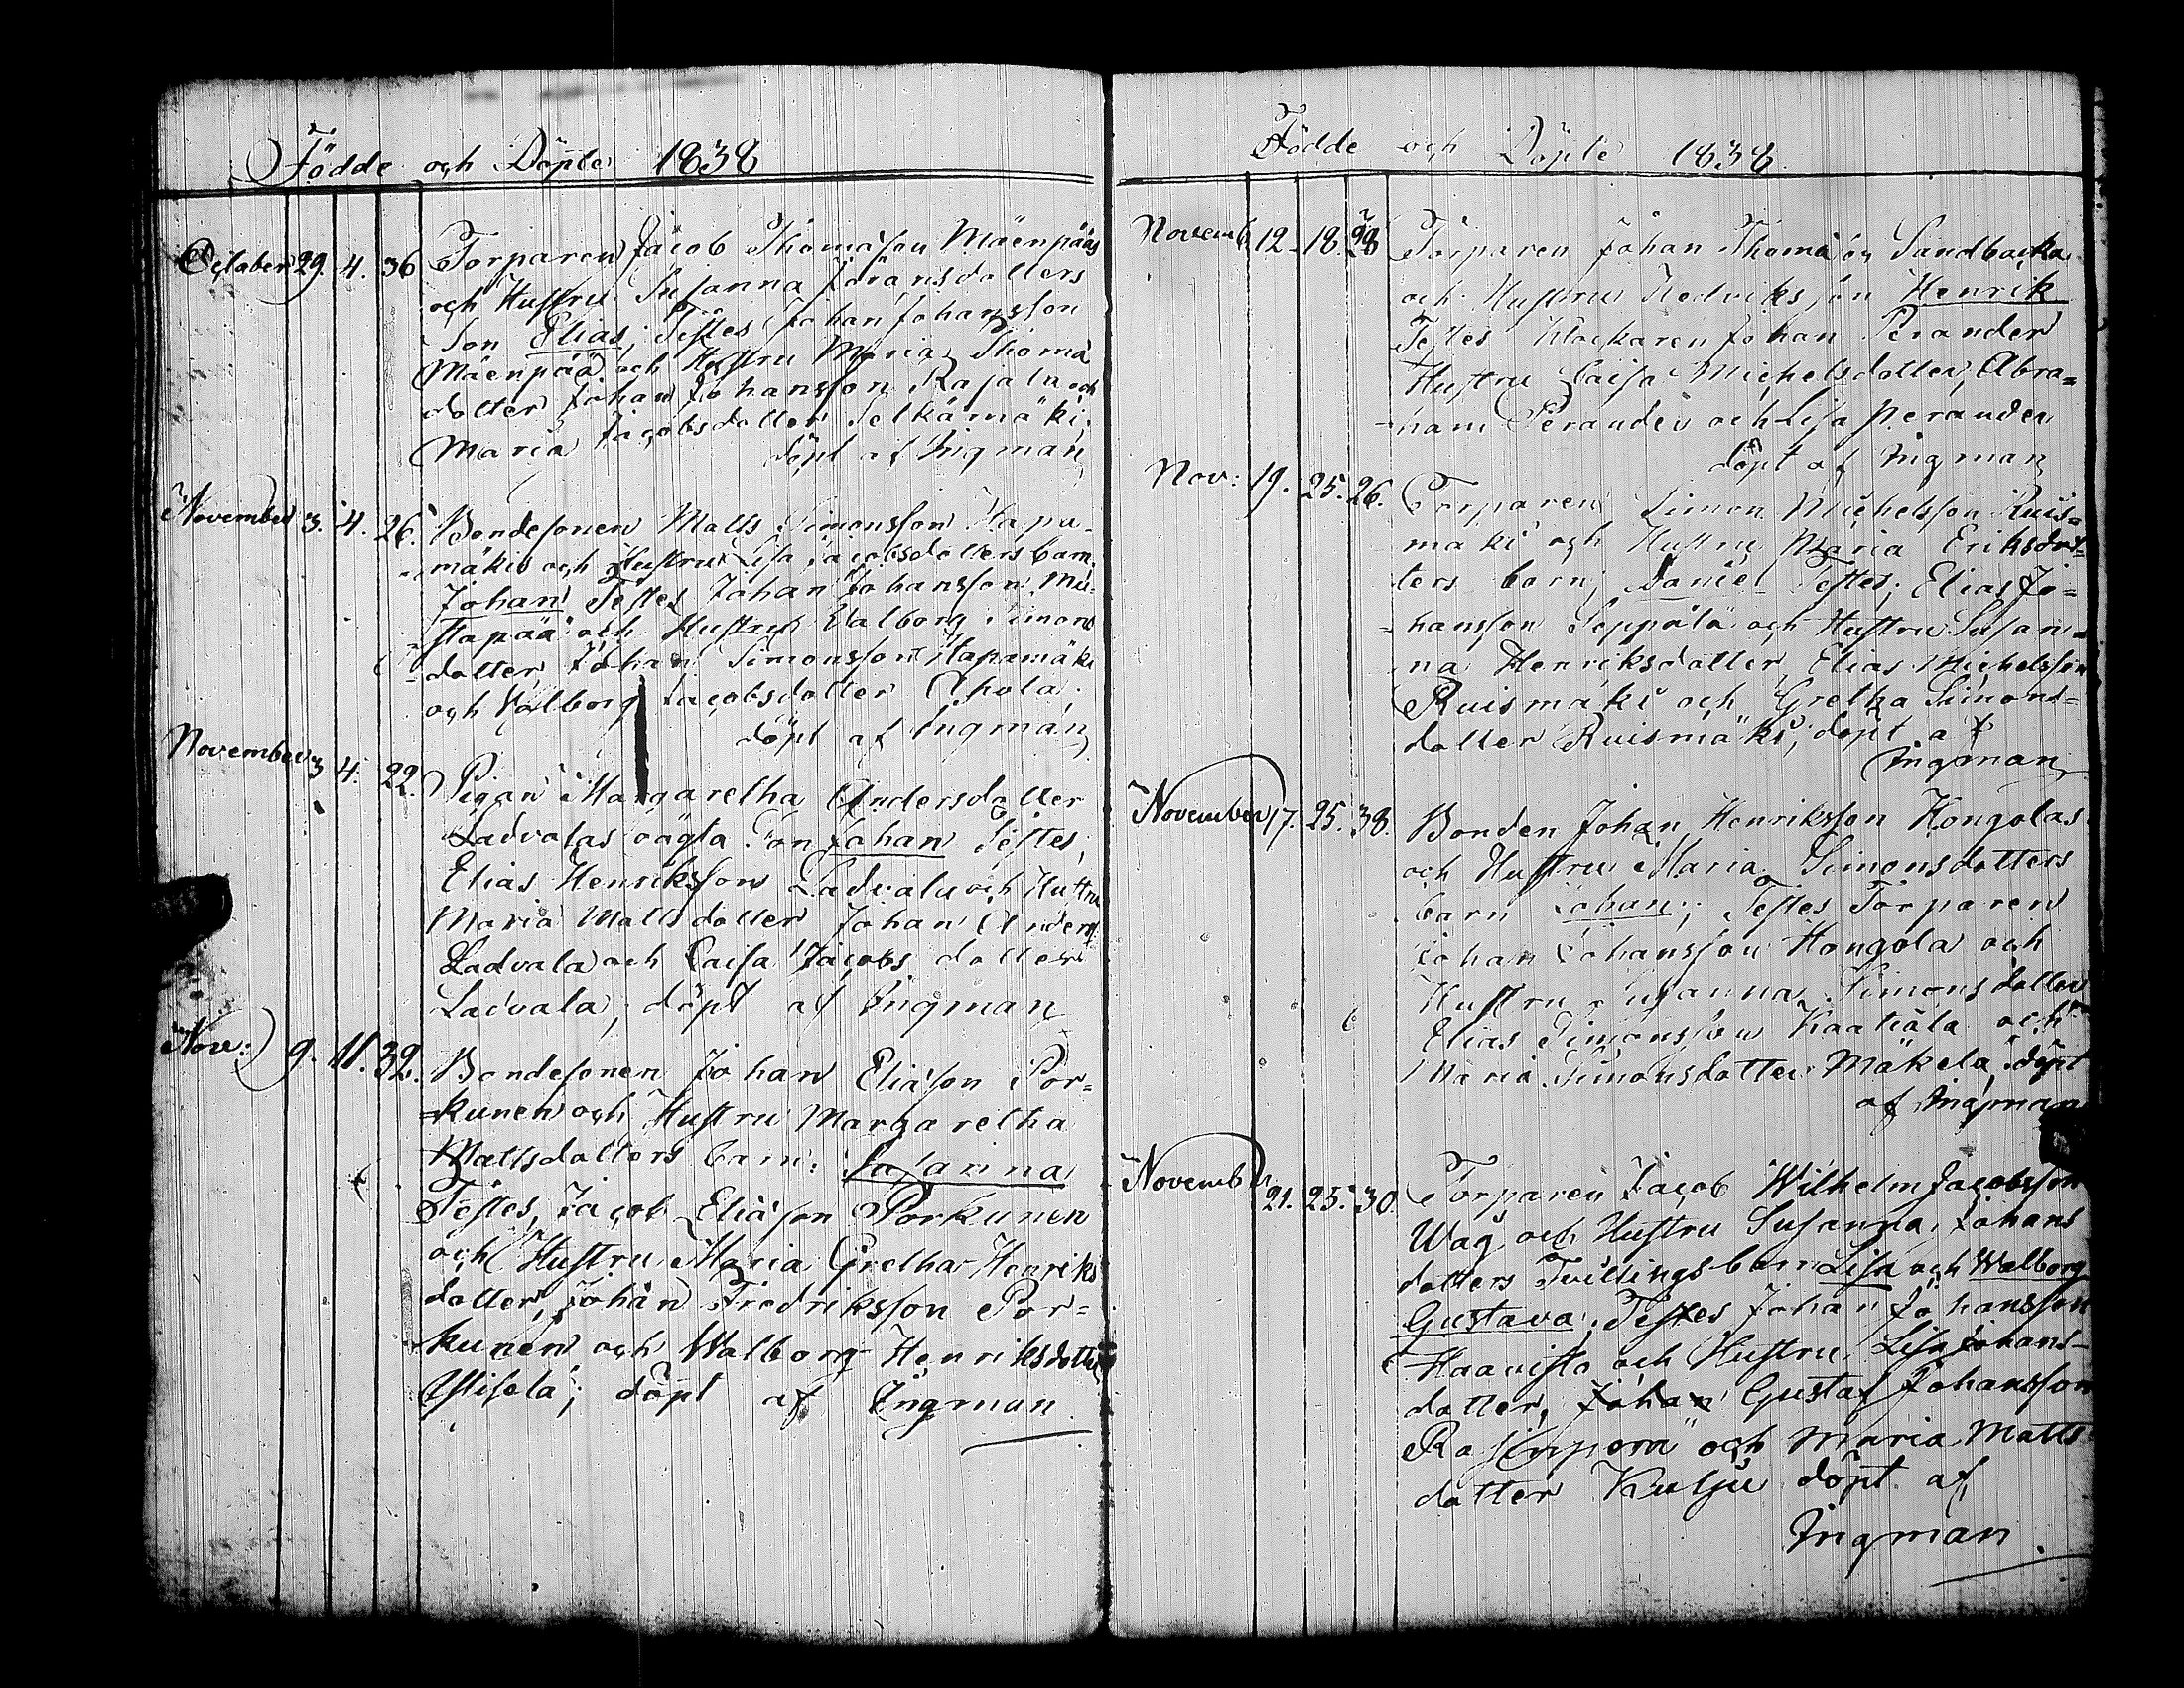 Födde och Döpte 1838
October 29. 4. 36 Torparen Jacob Thomason Mäenpääs
och Hustru Susanna Göransdotters
Son Elias; Testes Johan Johansson
Mäenpää och Hustru Maria Thomä
dotter Johan Johansson Rajala och
Maria Jacobsdotter Selkämäki;
döpt af Ingman
November 3. 4. 26. Bondesonen Matts Simonsson Hapu-
mäkis och Hustru Lisa Jacobsdotters barn
Johan Testes Johan Johansson Mu-
stapää och Hustru Valborg Simons
dotter, Johan Simonsson Hapamäki
och Valborg Jacobsdotter Ahola.
döpt af Ingman
November 3 4. 22. Pigan Margaretha Andersdotter
Ladvalas oägta Son Johan Testes,
Elias Henriksson Ladvala och Hustru
Maria Mattsdotter Johan Anders
Ladvala och Caisa Jacobs dotter
Ladvala, döpt af Ingman
Nov: 9. 11. 32. Bondesonen Johan Eliäson Por=
=kunen och Hustru Margaretha
Mattsdotters barn: Susanna
Testes, Jacob Eliäson Porkunen
och Hustru Maria Gretha Henriks
dotter, Johan Fredriksson Por=
kunen och Walborg Henriksdotter
Ylisela; döpt af Ingman
Födde och Döpte 1838.
Novemb 12 - 18. 38 Torparen Johan Thomason Sandbacka
och Hustru Hedviks son Henrik
Testes Klockaren Johan Perander
Hustru Caisa Michelsdotter, Abra=
ham Perander och Lisa Perander
döpt af Ingman
Nov: 19. 25. 26. Torparen Simon Michelsson Ruis=
mäki och Hustru Maria Eriksdot=
ters barn; Daniel Testes; Elias Jo=
hansson Seppälä och Hustru Susan=
na Henriksdotter, Elias Michelsson
Ruismäki och Gretha Simons=
dotter Ruismäki, döpt af
Ingman
November 17. 25. 38. Bonden Johan Henriksson Hongolas
och Hustru Maria Simonsdotters
barn Johan; Testes Torparen
Johan Johansson Hongola och
Hustru Susanna Simonsdotter
Elias Simonsson Kaatiala och
Maria Simonsdotter Mäkelä, döpt
af Ingman
Novemb 21. 25. 30. Torparen Jacob Wilhelm Jacobsson
Wag och Hustru Susanna Johans
dotters Tvillingsbarn Lisa och Walborg
Gustava; Testes Johan Johansson
Haavisto och Hustru Lisa Johans-
dotter, Johan Gustaf Johansson
och Maria Matts
dotter Kulju döpt af
Ingman